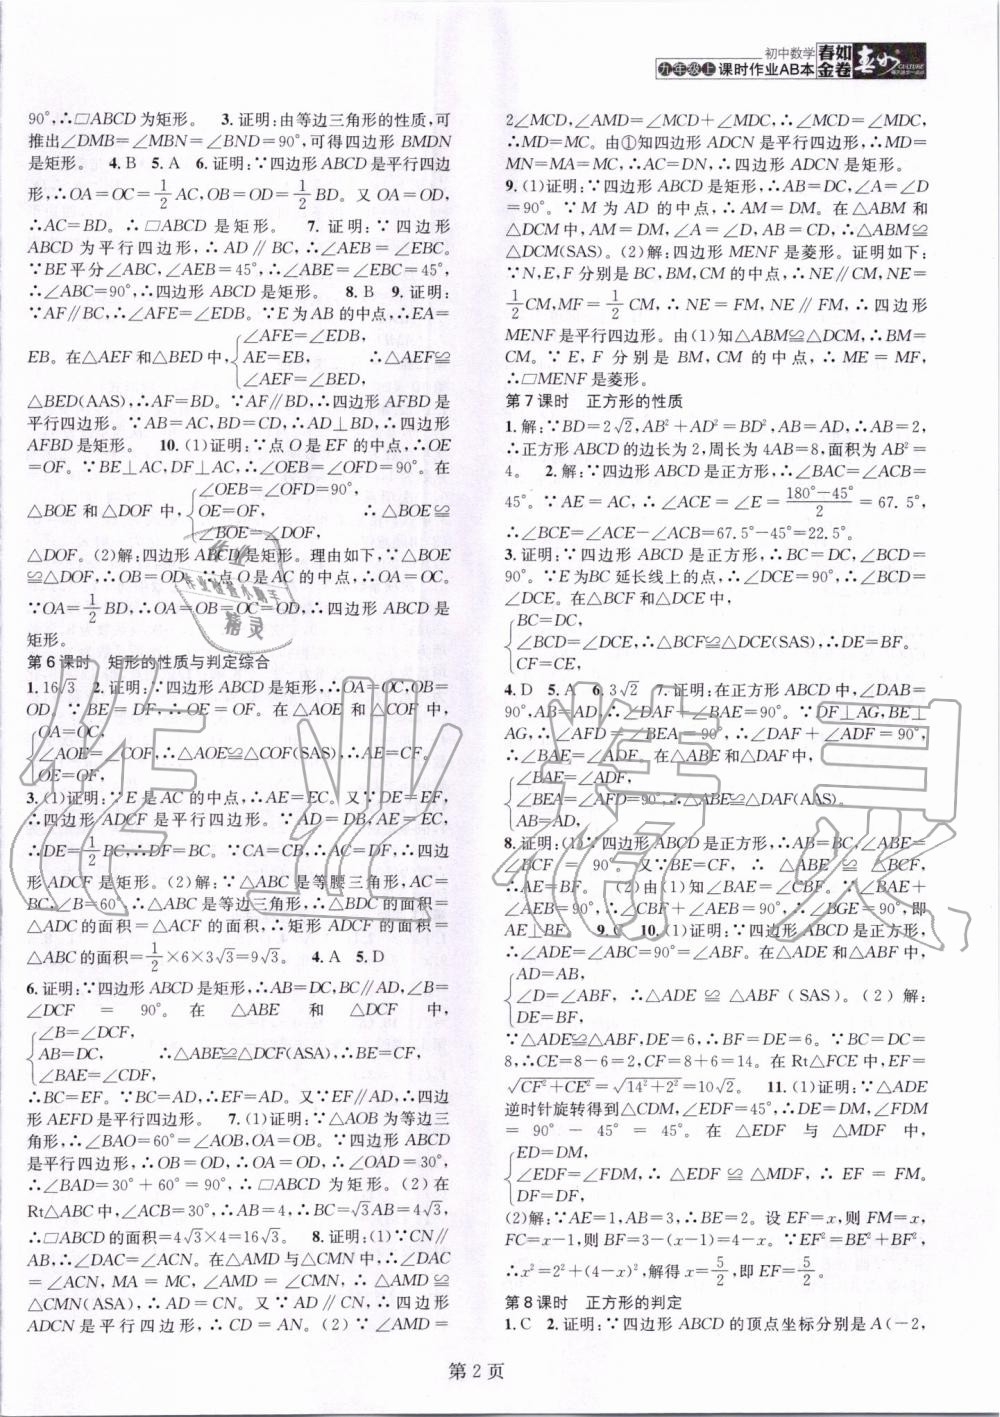 初中数学
九年级上 课时作业AB本
春如金卷
90°,∴□ABCD为矩形。 3.证明:由等边三角形的性质,可
推出∠DMB=∠MBN=∠BND=90°,可得四边形BMDN
是矩形。 4.B 5.A 6.证明:∵四边形ABCD是平行四边
形,∴OA=OC=1/2AC,OB=OD=1/2BD。又OA=OD,
∴AC=BD。∴□ABCD是矩形。 7.证明:∵四边形
ABCD为平行四边形,∴AD∥BC,∴∠AEB=∠EBC。
∵BE平分∠ABC,∠AEB=45°,∴∠ABE=∠EBC=45°,
∴∠ABC=90°,∴四边形ABCD是矩形。 8.B 9.证明:
∵AF∥BC,∴∠AFE=∠EDB。∵E为AB的中点,∴EA=
∠AFE=∠EDB,
EB。在△AEF和△BED中,{AE=EB, ∴△AEF≌
∠AEF=∠BED,
△BED(AAS),∴AF=BD。又∵AF∥BD,∴四边形AFBD是
平行四边形。∵AB=AC,BD=CD,∴AD⊥BD,∴四边形
AFBD是矩形。 10.(1)证明:∵点O是EF的中点,∴OE
=OF。∵BE⊥AC,DF⊥AC,∴∠OEB=∠OFD=90°。在
∠OEB=∠OFD=90°,
△BOE和△DOF中,{OE=OF, ∴△BOE≌
∠BOE=∠DOF,
△DOF。(2)解:四边形ABCD是矩形。理由如下,∵△BOE
≌△DOF,∴OB=OD。∵点O是AC的中点,∴OA=OC。
∵OA=1/2BD,∴OA=OB=OC=OD,∴四边形ABCD是
矩形。
第6课时 矩形的性质与判定综合
1.16√3 2.证明:∵四边形ABCD是矩形,∴OA=OC,OB=
OD。∵BE=DF,∴OE=OF。在△AOE和△COF中,
OA=OC,
{∠AOE=∠COF,∴△AOE≌△COF(SAS),∴AE=CF。
OE=OF,
3.(1)证明:∵E是AC的中点,∴AE=EC。又∵DE=EF,
∴四边形ADCF是平行四边形。∵AD=DB,AE=EC,
∴DE=1/2BC,∴DF=BC。∵CA=CB,∴AC=DF,∴四边
形ADCF是矩形。(2)解:∵△ABC是等腰三角形,AC=
BC,∠B=60°,∴△ABC是等边三角形,∴△BDC的面积=
△ADC的面积=△ACF的面积,∴矩形ADCF的面积=
△ABC的面积=1/2×6×3√3=9√3。 4.A 5.D
6.证明:∵四边形ABCD是矩形,∴AB=DC,BC∥AD,∠B=
∠DCF=90°。在△ABE和△DCF中,
∠B=∠DCF,
{AB=DC, ∴△ABE≌△DCF(ASA),∴BE=CF,
∠BAE=∠CDF,
∴BC=EF。∵BC=AD,∴EF=AD。又∵EF∥AD,∴四边
形AEFD是平行四边形。 7.(1)证明:∵△AOB为等边三
角形,∴∠BAO=60°=∠AOB,OA=OB。∵四边形ABCD
是平行四边形,∴OB=OD,∴OA=OD,∴∠OAD=30°,
∴∠BAD=30°+60°=90°,∴□ABCD为矩形。(2)在
Rt△ABC中,∠ACB=30°,∴AB=4,∴BC=√3AB=4√3,
∴□ABCD的面积=4√3×4=16√3。 8.证明:(1)∵CN∥
AB,∴∠DAC=∠ACN。在△AMD与△CMN中,∴∠DAC
=∠ACN,MA=MC,∠AMD=∠CMN,∴△AMD≌
△CMN(ASA),∴AD=CN。又∵AD∥CN,∴四边形
ADCN是平行四边形,∴CD=AN。(2)∵∠AMD=
2∠MCD,∠AMD=∠MCD+∠MDC,∴∠MCD=∠MDC,
∴MD=MC。由①知四边形ADCN是平行四边形,∴MD=
MN=MA=MC,∴AC=DN,∴四边形ADCN是矩形。
9.(1)证明:∵四边形ABCD是矩形,∴AB=DC,∠A=∠D
=90°。∵M为AD的中点,∴AM=DM。在△ABM和
△DCM中,AM=DM,∠A=∠D,AB=CD,∴△ABM≌
△DCM(SAS)。(2)解:四边形MENF是菱形。证明如下:
∵N,E,F分别是BC,BM,CM的中点,∴NE∥CM,NE=
1/2CM,MF=1/2CM,∴NE=FM,NE∥FM,∴四边形
MENF是平行四边形。由(1)知△ABM≌△DCM,∴BM=
CM。∵E,F分别是BM,CM的中点,∴ME=MF,
∴□MENF是菱形。
第7课时 正方形的性质
1.解:∵BD=2√2,AB²+AD²=BD²,AB=AD,∴AB=2,
∴正方形ABCD的边长为2,周长为4AB=8,面积为AB²=
4。 2.解:∵四边形ABCD是正方形,∴∠BAC=∠ACB=
45°。∵AE=AC,∴∠ACE=∠E=(180°−45°)/2=67.5°,
∴∠BCE=∠ACE−∠ACB=67.5°−45°=22.5°。
3.证明:∵四边形ABCD是正方形,∴BC=DC,∠BCD=
90°。∵E为BC延长线上的点,∴∠DCE=90°,∴∠BCD=
∠DCE。在△BCF和△DCE中,
BC=DC,
{∠BCD=∠DCE,∴△BCF≌△DCE(SAS),∴DE=BF。
CF=CE,
4.D 5.A 6.3√2 7.证明:在正方形ABCD中,∠DAB=
90°,AB=AD,∴∠DAF+∠BAE=90°。∵DF⊥AG,BE⊥
AG,∴∠AFD=∠BEA=90°,∴∠DAF+∠ADF=90°,
∴∠BAE=∠ADF。在△ABE和△DAF中,
∠BAE=∠ADF,
{∠BEA=∠AFD=90°,∴△ABE≌△DAF(AAS)。
AB=AD,
8.证明:(1)∵四边形ABCD是正方形,∴AB=BC,∠ABE=
∠BCF=90°。又∵BE=CF,∴△ABE≌△BCF,
∴AE=BF。 (2)由(1)知∠BAE=∠CBF。∵∠BAE+
∠AEB=90°,∴∠CBF+∠AEB=90°,∴∠BGE=90°,即
AE⊥BF。 9.C 10.(1)证明:∵四边形ABCD是正方形,
∴∠ADE=∠ABC=90°=∠ABF。在△ADE和△ABF中,
AD=AB,
{∠D=∠ABF,∴△ADE≌△ABF(SAS)。(2)解:
DE=BF,
∵△ADE≌△ABF,DE=6,∴BF=DE=6。∵BC=DC=
8,∴CE=8−6=2,CF=8+6=14。在Rt△FCE中,EF=
√(CF²+CE²)=√(14²+2²)=10√2。 11.(1)证明:∵△ADE
逆时针旋转得到△CDM,∠EDF=45°,∴DE=DM,∠FDM
=90°−45°=45°。在△EDF与△MDF中,
ED=DM,
{∠EDF=∠FDM,∴△EDF≌△MDF,∴EF=FM。
DF=DF,
(2)解:∵AE=1,AB=3,∴BE=2。设EF=x,则FM=x,
FC=x−1,则BF=3−(x−1)=4−x。∵EF²=BE²+BF²,
∴x²=2²+(4−x)²,解得x=5/2,即EF=5/2。
第8课时 正方形的判定
1.C 2.证明:∵四边形ABCD的顶点坐标分别是A(−2,
第2页
作业精灵